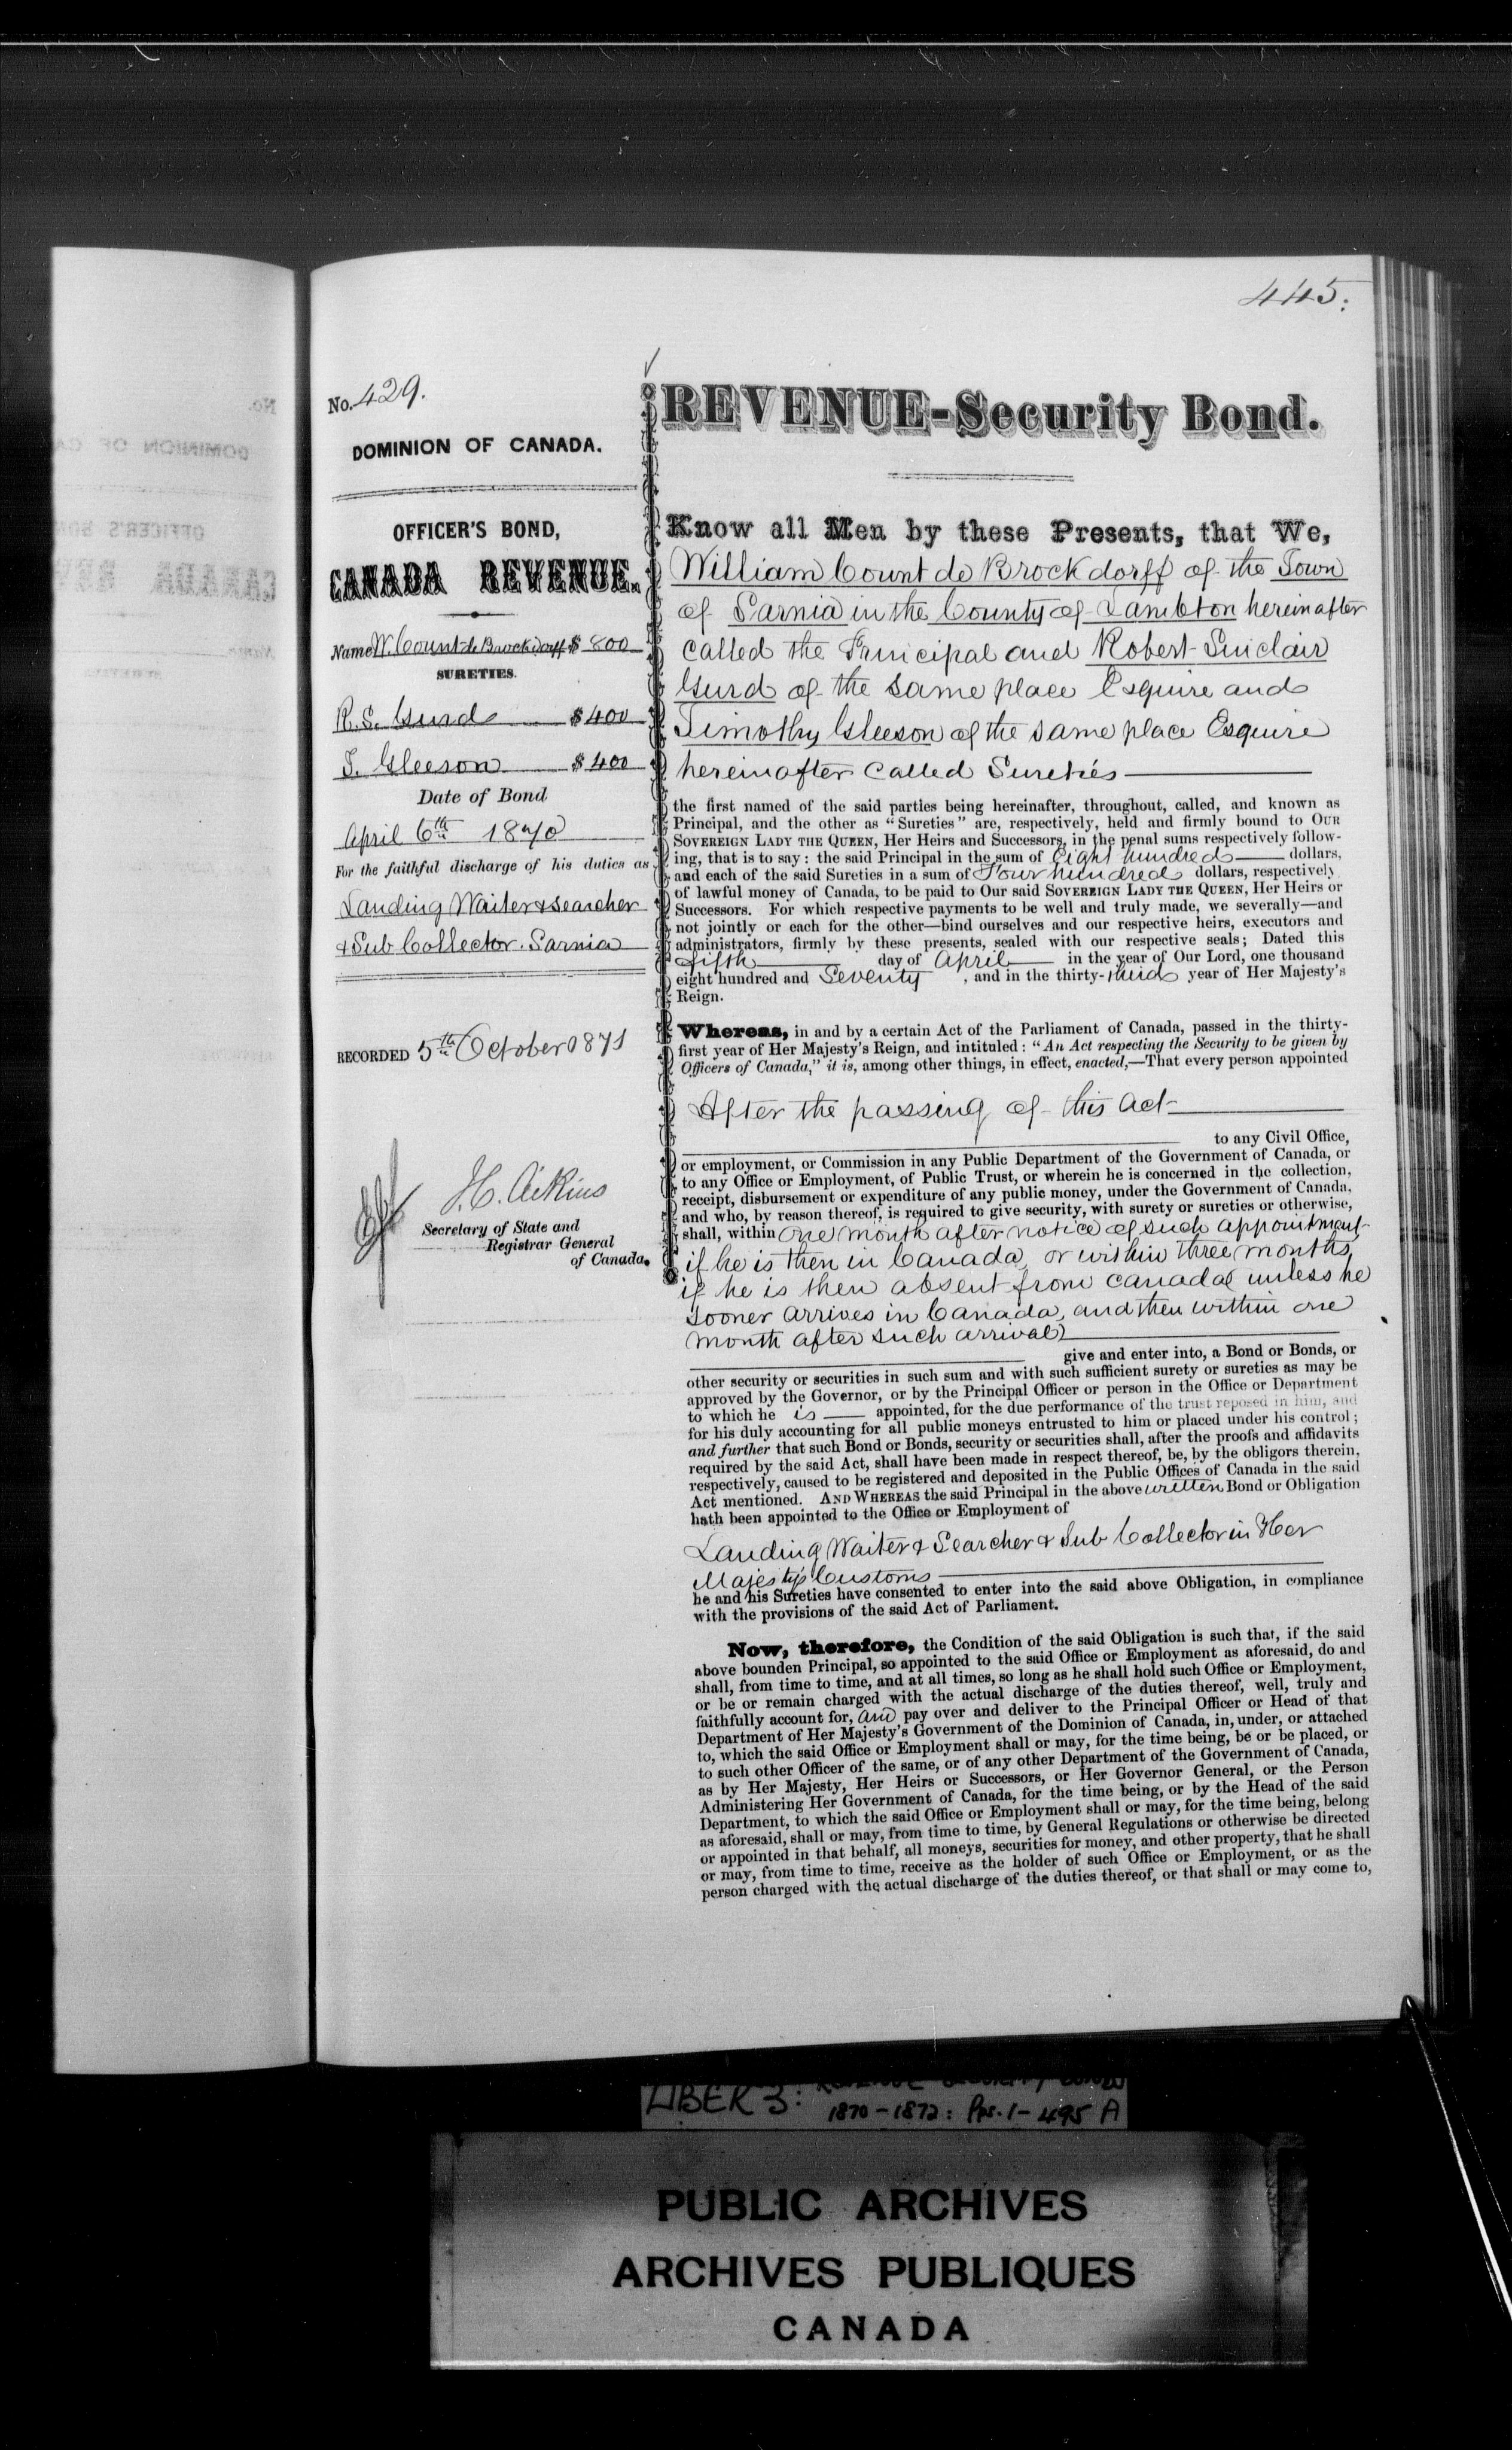 445.
No. 429.
DOMINION OF CANADA.
OFFICER'S BOND,
CANADA REVENUE.
Name W. Count de Brockdorff $ 800
SURETIES.
R. S. Gurd $ 400
T. Gleeson $ 400
Date of Bond
April 6th 1870
For the faithful discharge of his duties as
Landing Waiter & Searcher
& Sub Collector. Sarnia
RECORDED 5th October 1871
J.C. Aikins
Secretary of State and
Registrar General
of Canada.
REVENUE-Security Bond.
Know all Men by these Presents, that We,
William Count de Brockdorff of the Town
of Sarnia in the County of Lambton hereinafter
called the Principal and Robert Sinclair
Gurd of the same place Esquire and
Timothy Gleeson of the same place Esquire
hereinafter called Sureties
the first named of the said parties being hereinafter, throughout, called, and known as
Principal, and the other as "Sureties" are, respectively, held and firmly bound to OUR
SOVEREIGN LADY THE QUEEN, Her Heirs and Successors, in the penal sums respectively follow-
ing, that is to say: the said Principal in the sum of Eight hundred dollars,
and each of the said Sureties in a sum of Four hundred dollars, respectively
of lawful money of Canada, to be paid to Our said SOVEREIGN LADY THE QUEEN, Her Heirs or
Successors. For which respective payments to be well and truly made, we severally—and
not jointly or each for the other—bind ourselves and our respective heirs, executors and
administrators, firmly by these presents, sealed with our respective seals; Dated this
fifth day of April in the year of Our Lord, one thousand
eight hundred and Seventy, and in the thirty-third year of Her Majesty's
Reign.
Whereas, in and by a certain Act of the Parliament of Canada, passed in the thirty-
first year of Her Majesty's Reign, and intituled: "An Act respecting the Security to be given by
Officers of Canada," it is, among other things, in effect, enacted,—That every person appointed
After the passing of this Act
to any Civil Office,
or employment, or Commission in any Public Department of the Government of Canada, or
to any Office or Employment, of Public Trust, or wherein he is concerned in the collection,
receipt, disbursement or expenditure of any public money, under the Government of Canada,
and who, by reason thereof, is required to give security, with surety or sureties or otherwise,
shall, within one month after notice of such appointment
if he is then in Canada, or within three months,
if he is then absent from Canada (unless he
sooner arrives in Canada, and then within one
month after such arrival)
give and enter into, a Bond or Bonds, or
other security or securities in such sum and with such sufficient surety or sureties as may be
approved by the Governor, or by the Principal Officer or person in the Office or Department
to which he is appointed, for the due performance of the trust reposed in him, and
for his duly accounting for all public moneys entrusted to him or placed under his control;
and further that such Bond or Bonds, security or securities shall, after the proofs and affidavits
required by the said Act, shall have been made in respect thereof, be, by the obligors therein,
respectively, caused to be registered and deposited in the Public Offices of Canada in the said
Act mentioned. AND WHEREAS the said Principal in the above written Bond or Obligation
hath been appointed to the Office or Employment of
Landing Waiter & Searcher & Sub Collector in Her
Majesty's Customs
he and his Sureties have consented to enter into the said above Obligation, in compliance
with the provisions of the said Act of Parliament.
Now, therefore, the Condition of the said Obligation is such that, if the said
above bounden Principal, so appointed to the said Office or Employment as aforesaid, do and
shall, from time to time, and at all times, so long as he shall hold such Office or Employment,
or be or remain charged with the actual discharge of the duties thereof, well, truly and
faithfully account for, and pay over and deliver to the Principal Officer or Head of that
Department of Her Majesty's Government of the Dominion of Canada, in, under, or attached
to, which the said Office or Employment shall or may, for the time being, be or be placed, or
to such other Officer of the same, or of any other Department of the Government of Canada,
as by Her Majesty, Her Heirs or Successors, or Her Governor General, or the Person
Administering Her Government of Canada, for the time being, or by the Head of the said
Department, to which the said Office or Employment shall or may, for the time being, belong
as aforesaid, shall or may, from time to time, by General Regulations or otherwise be directed
or appointed in that behalf, all moneys, securities for money, and other property, that he shall
or may, from time to time, receive as the holder of such Office or Employment, or as the
person charged with the actual discharge of the duties thereof, or that shall or may come to,
LIBER 3: REVENUE SECURITY BONDS
1870-1872: Pps. 1-495 A
PUBLIC ARCHIVES
ARCHIVES PUBLIQUES
CANADA